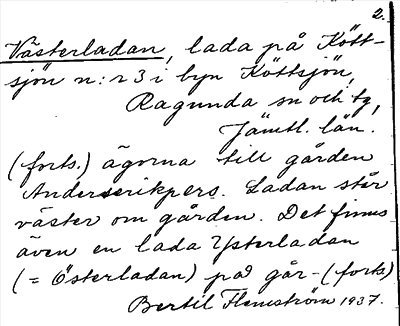 2.
Västerladan, lada på Kött-
sjön n:r 3 i byn Köttsjön,
Ragunda sn och tg,
Jämtl. län.
(forts.) ägorna till gården
Anderserikpers. Ladan står
väster om gården. Det finns
även en lada Ysterladan
(= Österladan) på går- (forts)
Bertil Flemström 1937.